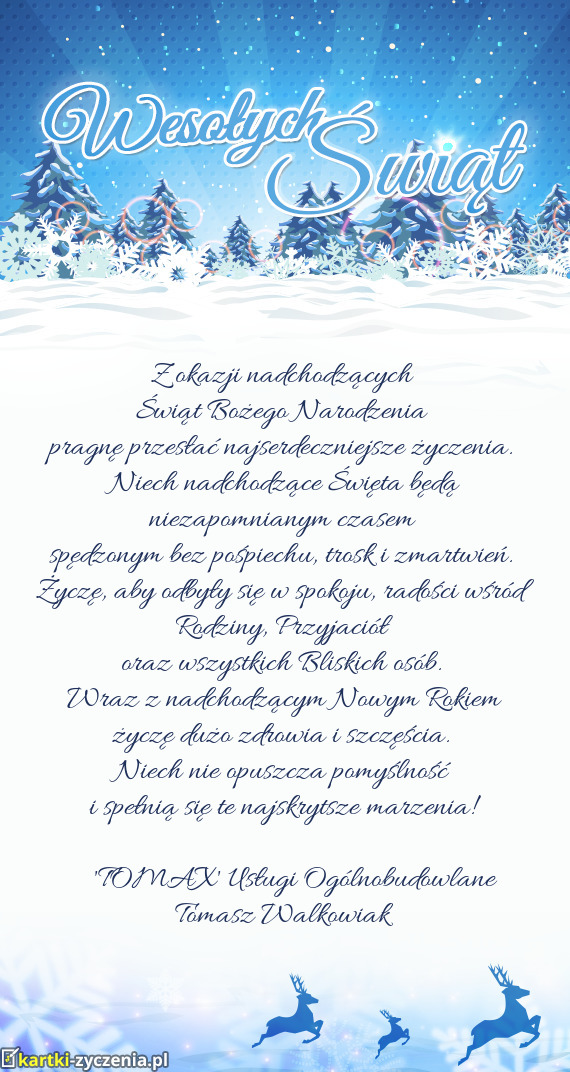 Wesołych
Świąt
Z okazji nadchodzących
Świąt Bożego Narodzenia
pragnę przesłać najserdeczniejsze życzenia.
Niech nadchodzące Święta będą
niezapomnianym czasem
spędzonym bez pośpiechu, trosk i zmartwień.
Życzę, aby odbyły się w spokoju, radości wśród
Rodziny, Przyjaciół
oraz wszystkich Bliskich osób.
Wraz z nadchodzącym Nowym Rokiem
życzę dużo zdrowia i szczęścia.
Niech nie opuszcza pomyślność
i spełnią się te najskrytsze marzenia!
'TOMAX' Usługi Ogólnobudowlane
Tomasz Walkowiak
kartki-zyczenia.pl